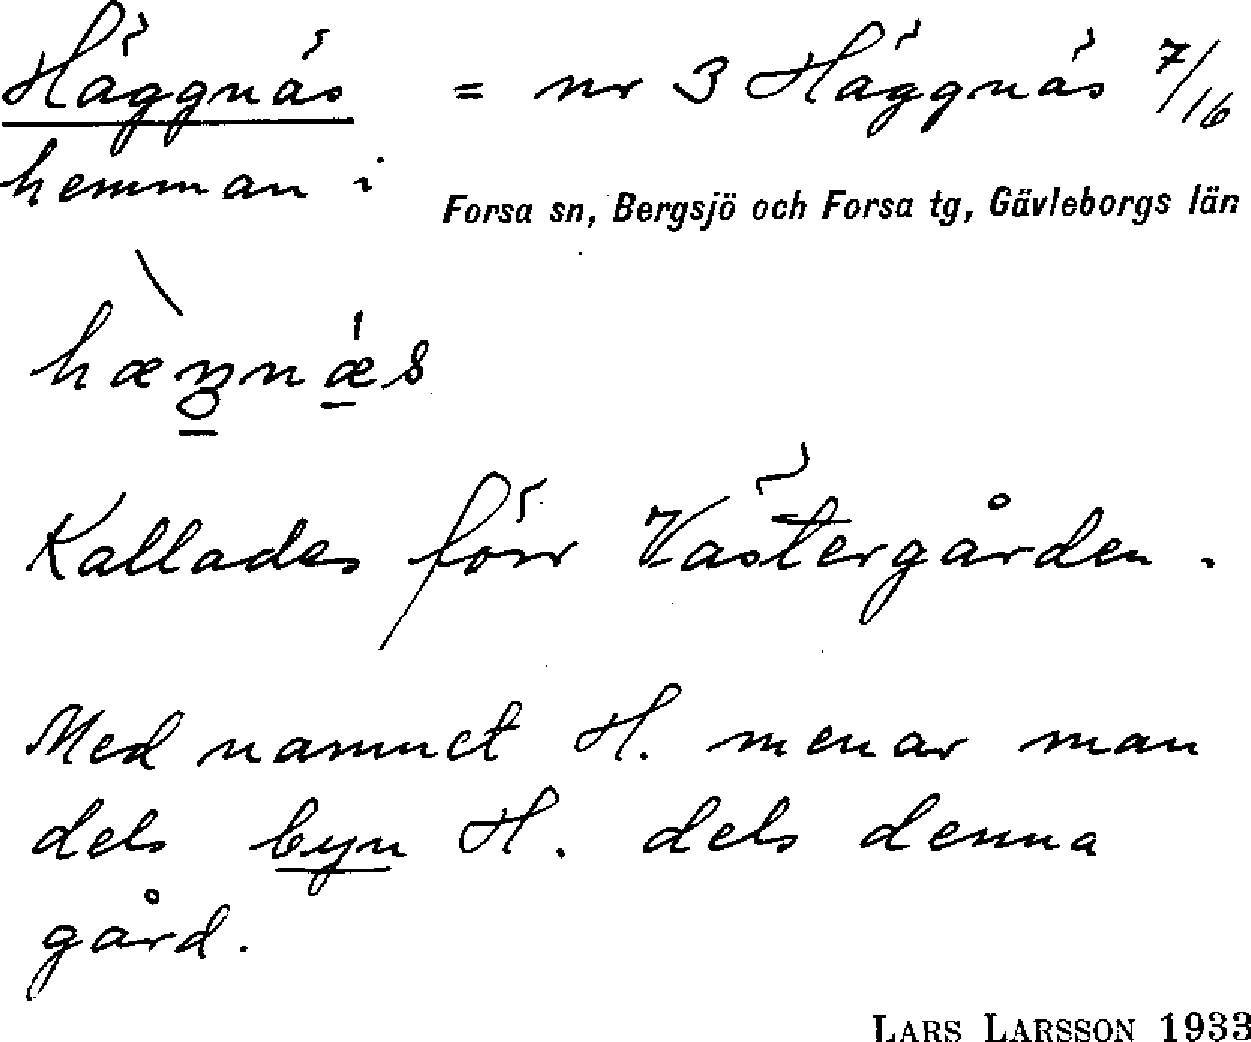 Häggnäs = nr 3 Häggnäs 7/16
hemman i
Forsa sn, Bergsjö och Forsa tg, Gävleborgs län
Kallades förr Västergården.
Med namnet H. menar man
dels byn H. dels denna
gård.
LARS LARSSON 1933